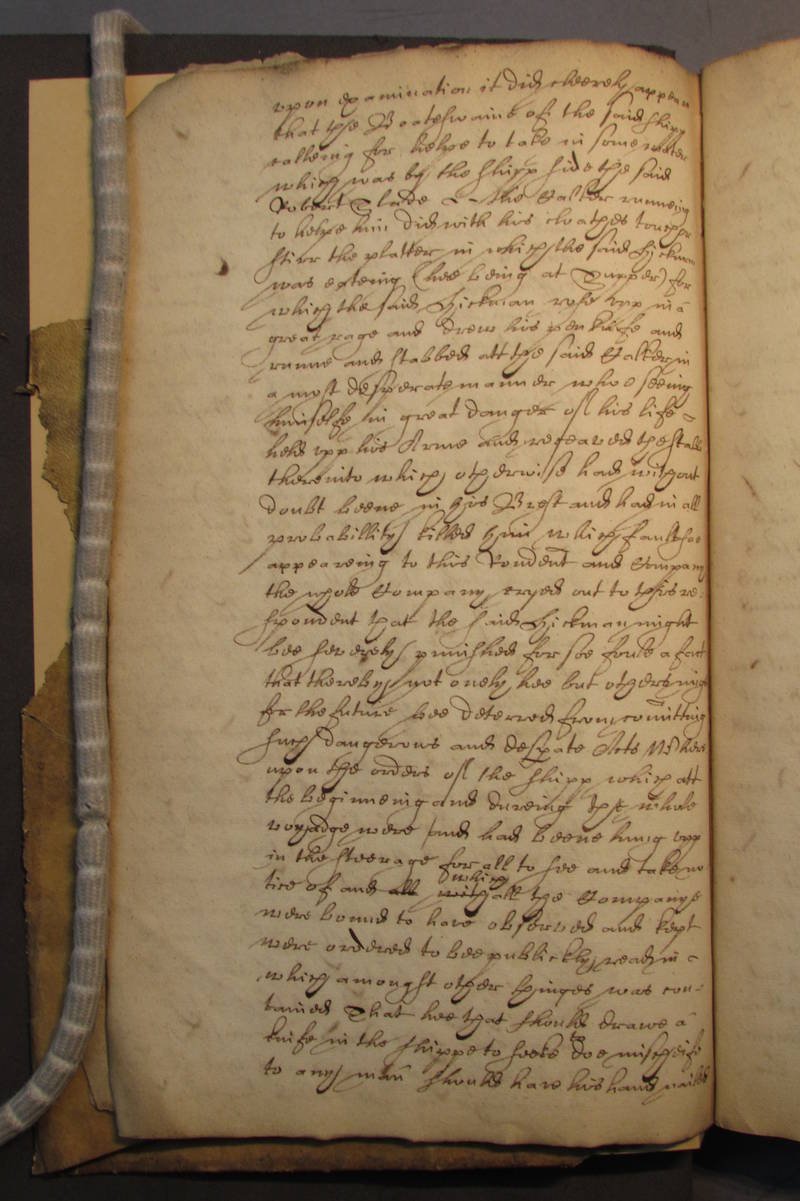 upon examination it did cleerely appeare
that the Boateswaine of the said shipp
calleing for helpe to take in some water
which was by the shipp side the said
Robert Slade the Calker runneing
to helpe him did with his cloathes touch or
stirr the platter in which the said Hickman
was eateing (hee being at Supper) for
which the said Hickman rose upp in a
great rage and drew his penknife and
runne and stabbed att the said Calker in
a most desperate manner whoe seeing
himselfe in great danger of his life
held upp his Arme and receaved the stabb
thereinto which otherwise had without
doubt beene in his Brest and had in all
probabillity killed him which fact soe
appeareing to this Rondent and Company
the whole Company cryed out to this re:
spondent that the said Hickman might
bee severely punished for soe foule a fact
that thereby not onely hee but others might
for the future bee deterred from comitting
such dangerous and desperate Acts
upon the orders of the shipp which att
the beginneing and dureing the whole
voyadge were and had beene hung upp
in the steerage for all to see and take no
tice of and all with which all the Companye
were bound to have observed and kept
were ordered to bee publickly read in
which amongst other thinges was con-
tained That hee that should drawe a
knife in the shippe to seeke to doe mischeife
to any man should have his hand nailed